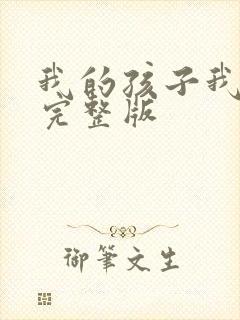 我的孩子我
完整版
御筆文生